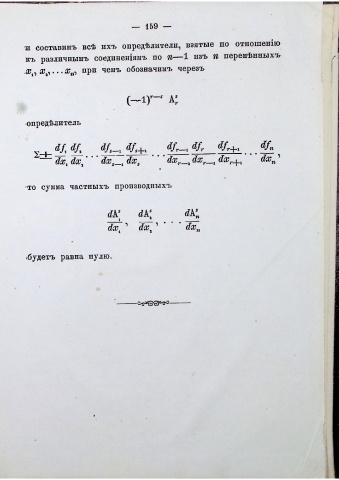 — 159 —
и составимъ всѣ ихъ опредѣлители, взятые по отношенію
къ различнымъ соединеніямъ по n—1 изъ n перемѣнныхъ
x₁, x₂, . . . xₙ, при чемъ обозначимъ черезъ
(—1)ʳ⁻ˢ Aˢᵣ
опредѣлитель
Σ± df₁/dx₁ df₂/dx₂ · · · dfₛ₋₁/dxₛ₋₁ dfₛ₊₁/dxₛ · · · dfᵣ₋₁/dxᵣ₋₂ dfᵣ/dxᵣ₋₁ dfᵣ₊₁/dxᵣ₊₁ · · · dfₙ/dxₙ ,
то сумма частныхъ производныхъ
dAˢ₁/dx₁ , dAˢ₂/dx₂ , · · · dAˢₙ/dxₙ
будетъ равна нулю.